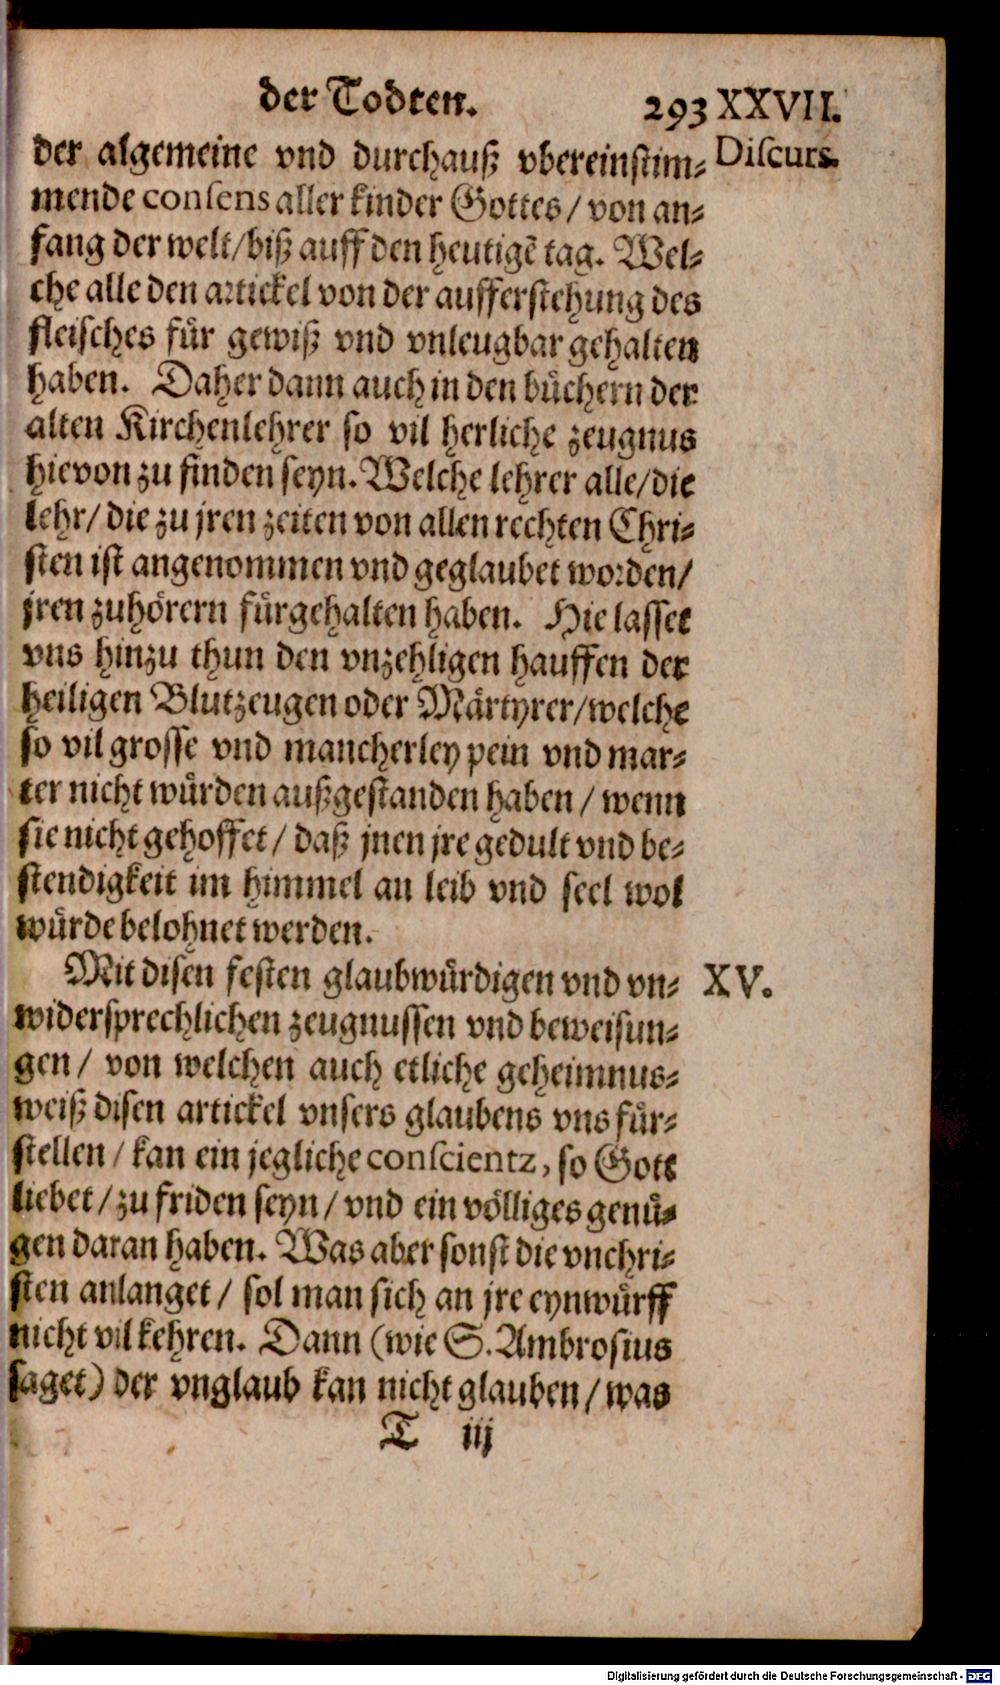 der Todten. 293 XXVII.
Discurs.
der algemeine vnd durchauß vbereinstim-
mende consens aller kinder Gottes / von an-
fang der welt / biß auff den heutigẽ tag. Wel-
che alle den artickel von der aufferstehung des
fleisches fuͤr gewiß vnd vnleugbar gehalten
haben. Daher dann auch in den buͤchern der
alten Kirchenlehrer so vil herliche zeugnus
hievon zu finden seyn. Welche lehrer alle / die
lehr / die zu jren zeiten von allen rechten Chri-
sten ist angenommen vnd geglaubet worden /
jren zuhoͤrern fuͤrgehalten haben. Hie lasset
vns hinzu thun den vnzehligen hauffen der
heiligen Blutzeugen oder Maͤrtyrer / welche
so vil grosse vnd mancherley pein vnd mar-
ter nicht wuͤrden außgestanden haben / wenn
sie nicht gehoffet / daß jnen jre gedult vnd be-
stendigkeit im himmel an leib vnd seel wol
wuͤrde belohnet werden.
Mit disen festen glaubwuͤrdigen vnd vn- XV.
widersprechlichen zeugnussen vnd beweisun-
gen / von welchen auch etliche geheimnus-
weiß disen artickel vnsers glaubens vns fuͤr-
stellen / kan ein jegliche conscientz, so Gott
liebet / zu friden seyn / vnd ein voͤlliges genuͤ-
gen daran haben. Was aber sonst die vnchri-
sten anlanget / sol man sich an jre eynwuͤrff
nicht vil kehren. Dann (wie S. Ambrosius
saget) der vnglaub kan nicht glauben / was
T iij
Digitalisierung gefördert durch die Deutsche Forschungsgemeinschaft - DFG